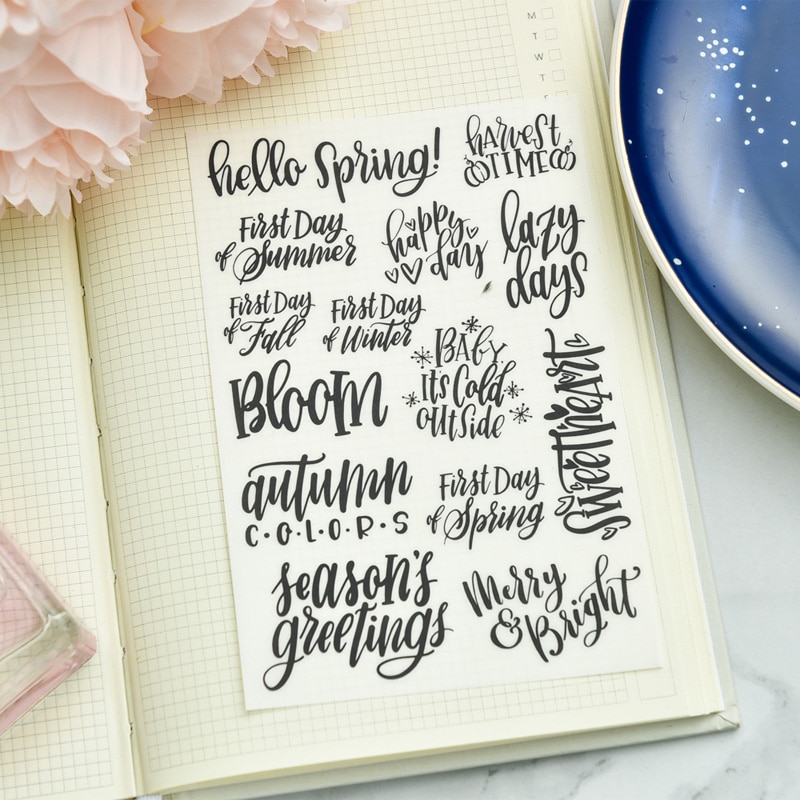 M
T
W
T
hello Spring!
harvest
TIME
First Day
of Summer
happy
day
lazy
days
First Day
of Fall
First Day
of Winter
BABY
It's Cold
outside
Bloom
sweetheart
autumn
C·O·L·O·R·S
First Day
of Spring
season's
greetings
Merry
& Bright